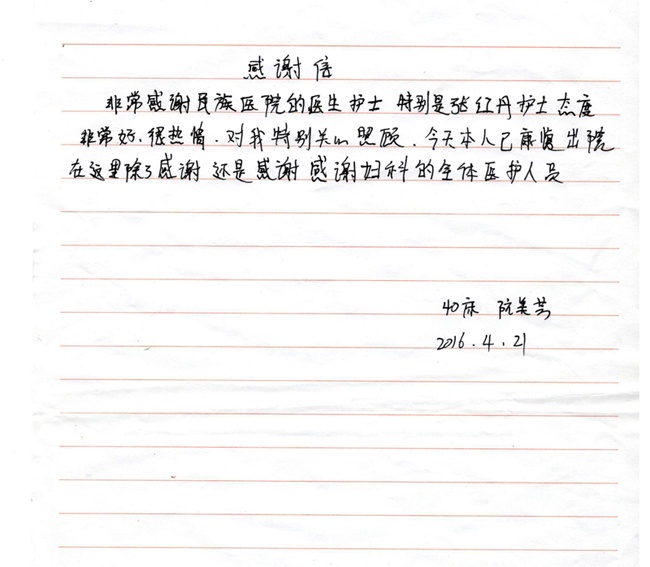 感谢信
非常感谢民族医院的医生护士 特别是张红丹护士态度
非常好、很热情、对我特别关心照顾、今天本人已康复出院
在这里除了感谢 还是感谢 感谢妇科的全体医护人员
40床 阮美芳
2016.4.21